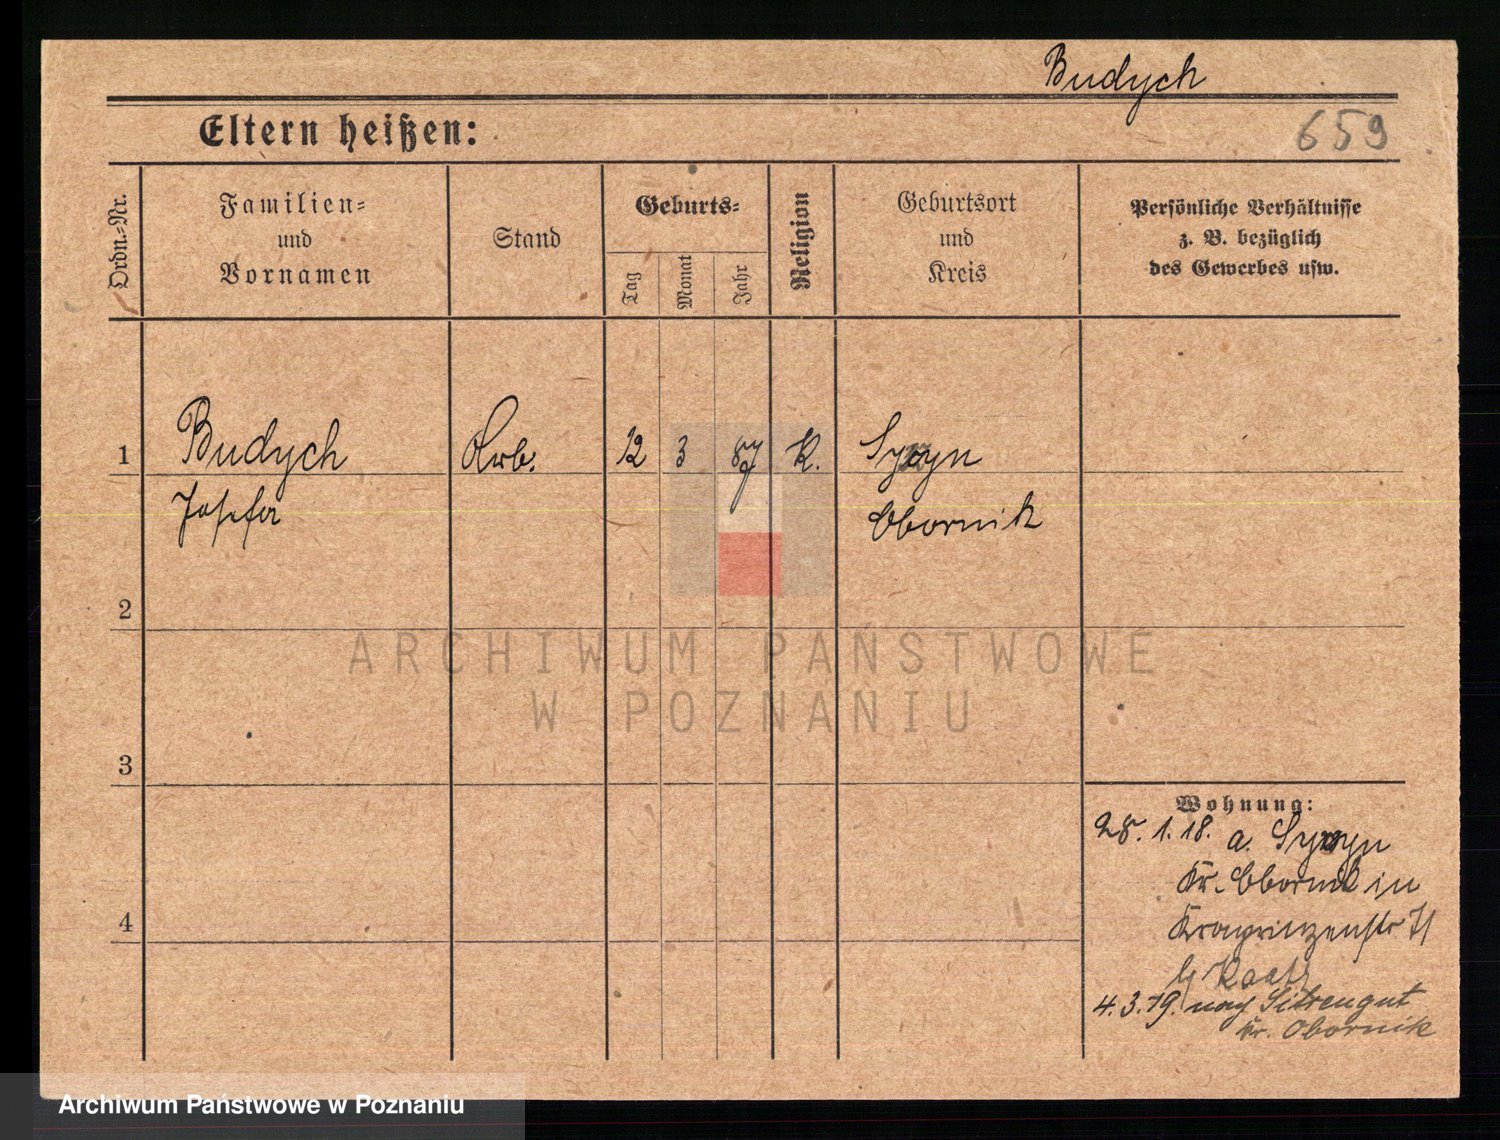 Budych
Eltern heißen:
659
Ordn.-Nr.
Familien-
und
Vornamen
Stand
Geburts-
Tag
Monat
Jahr
Religion
Geburtsort
und
Kreis
Persönliche Verhältnisse
z. B. bezüglich
des Gewerbes usw.
1
Budych
Arb.
12
3
87
K.
Josefa
Obornik
2
ARCHIWUM PAŃSTWOWE
W POZNANIU
3
Wohnung:
28. 1. 18. a.
Kr. Obornik in
4
Kronprinzenstr
4. 3. 19. nach
Kr. Obornik
Archiwum Państwowe w Poznaniu